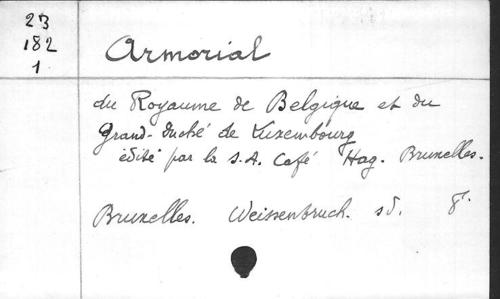 23
182
1
Armorial
du Royaume de Belgique et du
Grand-Duché de Luxembourg
édité par la S.A. Café Hag. Bruxelles.
Bruxelles. Weissenbruch. sd. 8°.